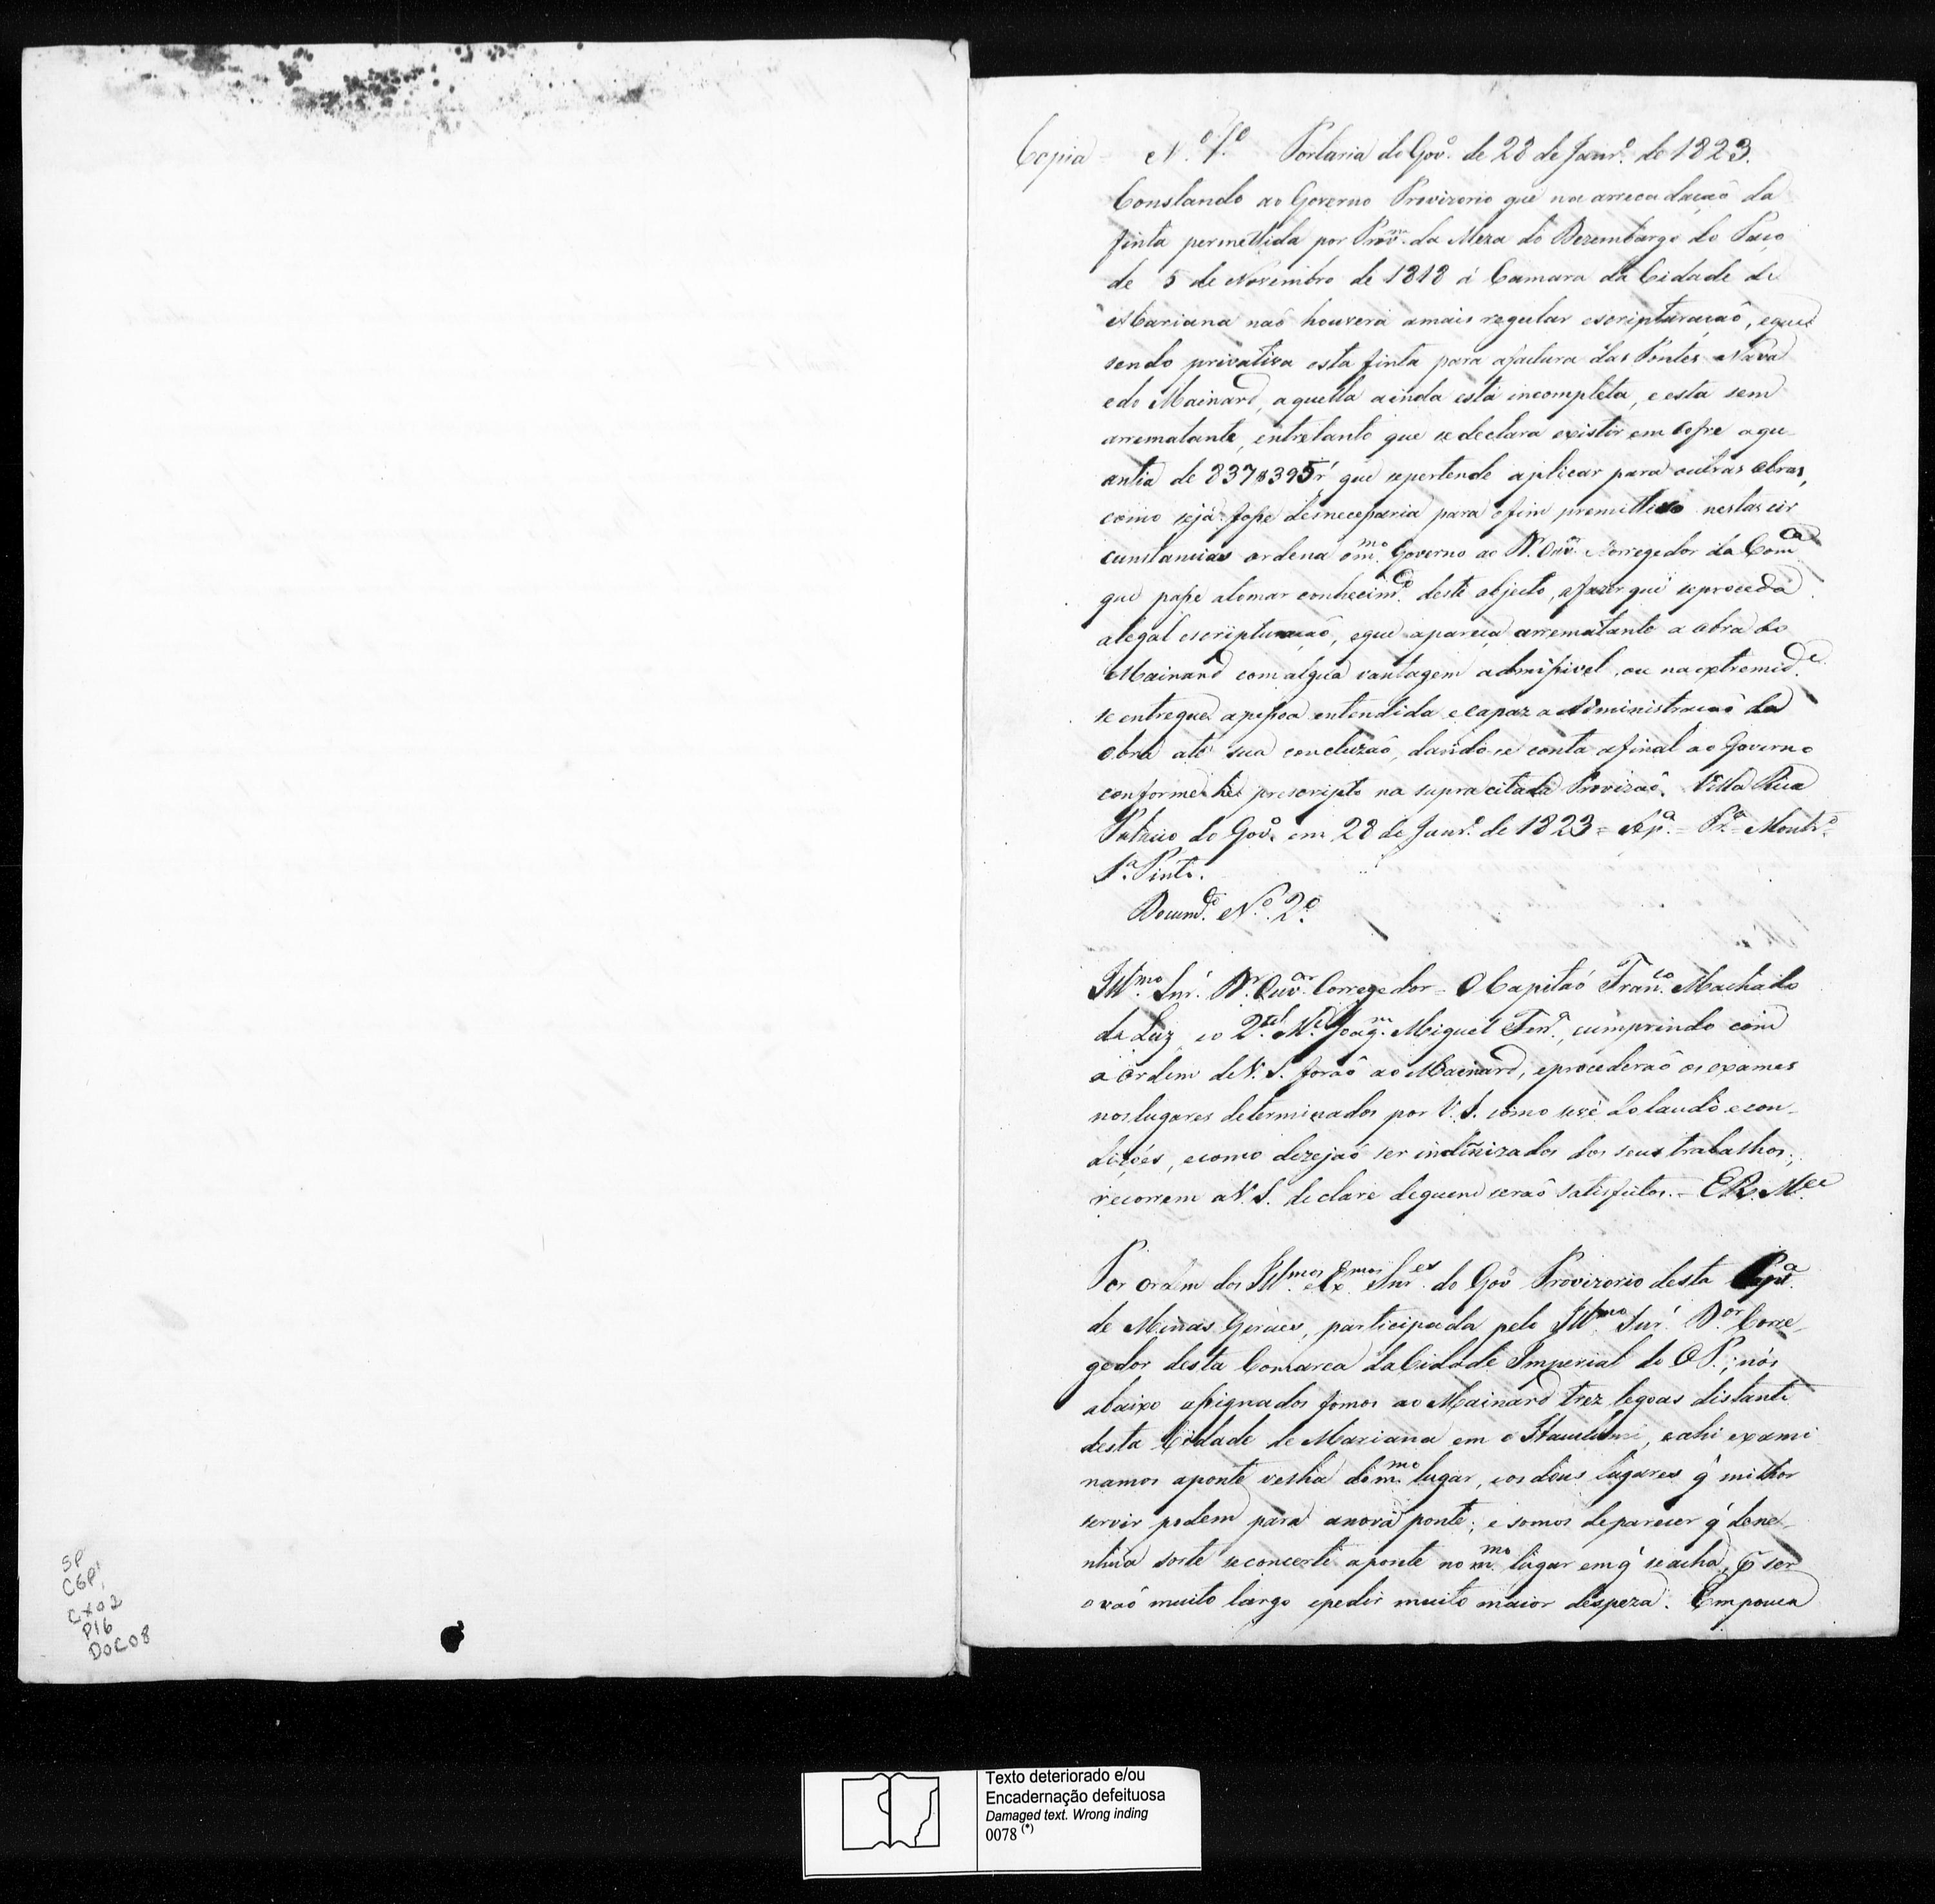 Copia N.º 1.º Portaria do Gov.º de 28 de Janr.º de 1823.
Constando ao Governo Provizorio que na arrecadaçaõ da
finta permettida por Prov.m da Meza do Dezembargo do Paço
de 5 de Novembro de 1818 á Camara da Cidade de
Mariana naõ houvera amais regular escripturaçaõ, eque
sendo privativa esta finta para afactura das Pontes Nova
edo Mainard, aquella ainda está incompleta, e esta sem
arrematante, entretanto que se declara existir em Cofre aqu-
antia de 837$395 r.' que sepertende aplicar para outras obras,
como sejá fosse desnecessaria para ofim premittivo nestas cir
cunstancias ordena om.mo Governo ao D.r Ouv.or Corregedor da Com.ca
que passe atomar conhecim.to deste objecto, afazer que seproceda
alegal escripturaçaõ, eque apareça arrematante a obra do
Mainard com algũa vantagem admissivel, ou na extremid.e
se entregue apessoa entendida e capaz a Administraçaõ da
obra até sua concluzaõ, dando-se conta afinal ao Governo
conforme hé prescripto na supra citada Provizaõ. Villa Rica
Palacio do Gov.º em 28 de Janr.º de 1823 = = Montr.º
Pinto.
Docum.to N.º 2.º
Ill.mo Snr.' D.r Ouv.or Corregedor = O Capitaõ Fran.co Machado
da Luz, eo 2.º Joaq.m Miguel Ferr.ª, cumprindo com
a ordem de V. S. foraõ ao Mainard, eprocederaõ os exames
nos lugares determinados por V. S. como sevé do laudo e con-
diçoes, ecomo dezejaõ ser indenizados dos seus trabalhos,
recorrem a V. S. declare dequem seraõ satisfeitos. = E R. M.ce
Por ordem dos Ill.mos e Ex.mos Snr.es do Gov.º Provizorio desta Cap.ª
de Minas Geraes, participada pelo Ill.mo Snr.' D.or Corre-
gedor desta Comarca da Cidade Imperial do O P.; nós
abaixo assignados fomos ao Mainard trez legoas distante
desta Cidade de Mariana em o Itacolumi, eahi exami
namos aponte velha do m.mo lugar, eos dous lugares q' milhor
servir podem para anova ponte; e somos deparecer q' dene-
nhua sorte seconcerte aponte no m.mo lugar emq' seacha, p.r ser
ovaõ muito largo epedir muito maior despeza. Em pouca
SP
CGP1
CX02
P16
DOC08
Texto deteriorado e/ou
Encadernação defeituosa
Damaged text. Wrong inding
0078 (*)